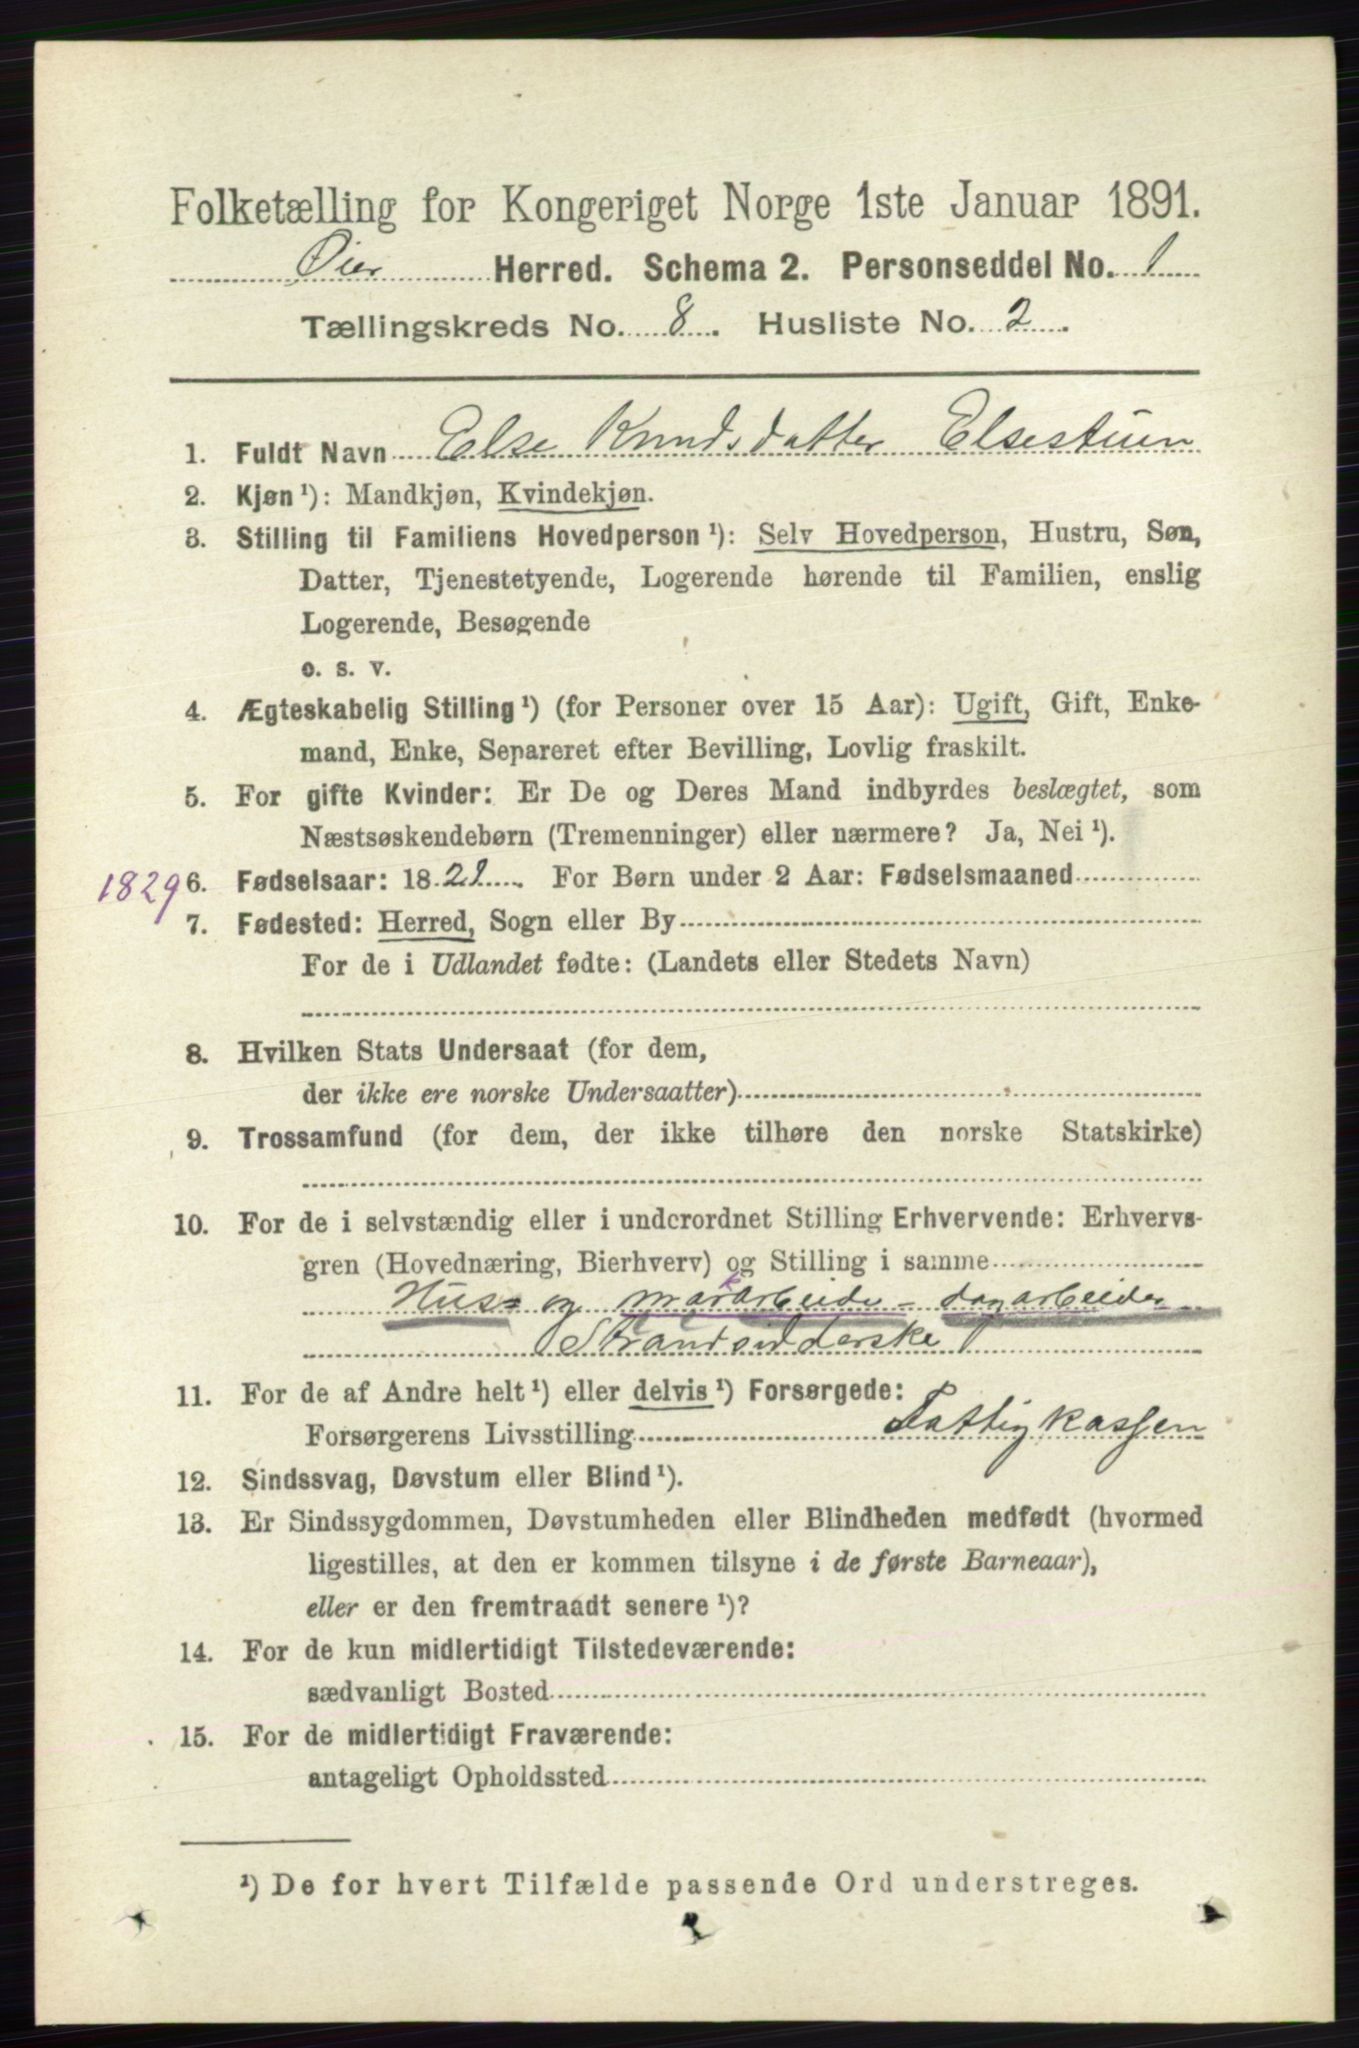 Folketælling for Kongeriget Norge 1ste Januar 1891.
Øier Herred. Schema 2. Personseddel No. 1
Tællingskreds No. 8. Husliste No. 2.
1. Fuldt Navn Else Knudsdatter Elsestuen
2. Kjøn ¹): Mandkjøn, Kvindekjøn.
3. Stilling til Familiens Hovedperson ¹): Selv Hovedperson, Hustru, Søn,
Datter, Tjenestetyende, Logerende hørende til Familien, enslig
Logerende, Besøgende
o. s. v.
4. Ægteskabelig Stilling ¹) (for Personer over 15 Aar): Ugift, Gift, Enke-
mand, Enke, Separeret efter Bevilling, Lovlig fraskilt.
5. For gifte Kvinder: Er De og Deres Mand indbyrdes beslægtet, som
Næstsøskendebørn (Tremenninger) eller nærmere? Ja, Nei ¹).
1829 6. Fødselsaar: 18 29. For Børn under 2 Aar: Fødselsmaaned
7. Fødested: Herred, Sogn eller By
For de i Udlandet fødte: (Landets eller Stedets Navn)
8. Hvilken Stats Undersaat (for dem,
der ikke ere norske Undersaatter)
9. Trossamfund (for dem, der ikke tilhøre den norske Statskirke)
10. For de i selvstændig eller i underordnet Stilling Erhvervende: Erhvervs-
gren (Hovednæring, Bierhverv) og Stilling i samme
Hus- og markarbeide - dagarbeider
Strandsidderske
11. For de af Andre helt ¹) eller delvis ¹) Forsørgede:
Forsørgerens Livsstilling Fattigkassen
12. Sindssvag, Døvstum eller Blind ¹).
13. Er Sindssygdommen, Døvstumheden eller Blindheden medfødt (hvormed
ligestilles, at den er kommen tilsyne i de første Barneaar),
eller er den fremtraadt senere ¹)?
14. For de kun midlertidigt Tilstedeværende:
sædvanligt Bosted
15. For de midlertidigt Fraværende:
antageligt Opholdssted
¹) De for hvert Tilfælde passende Ord understreges.